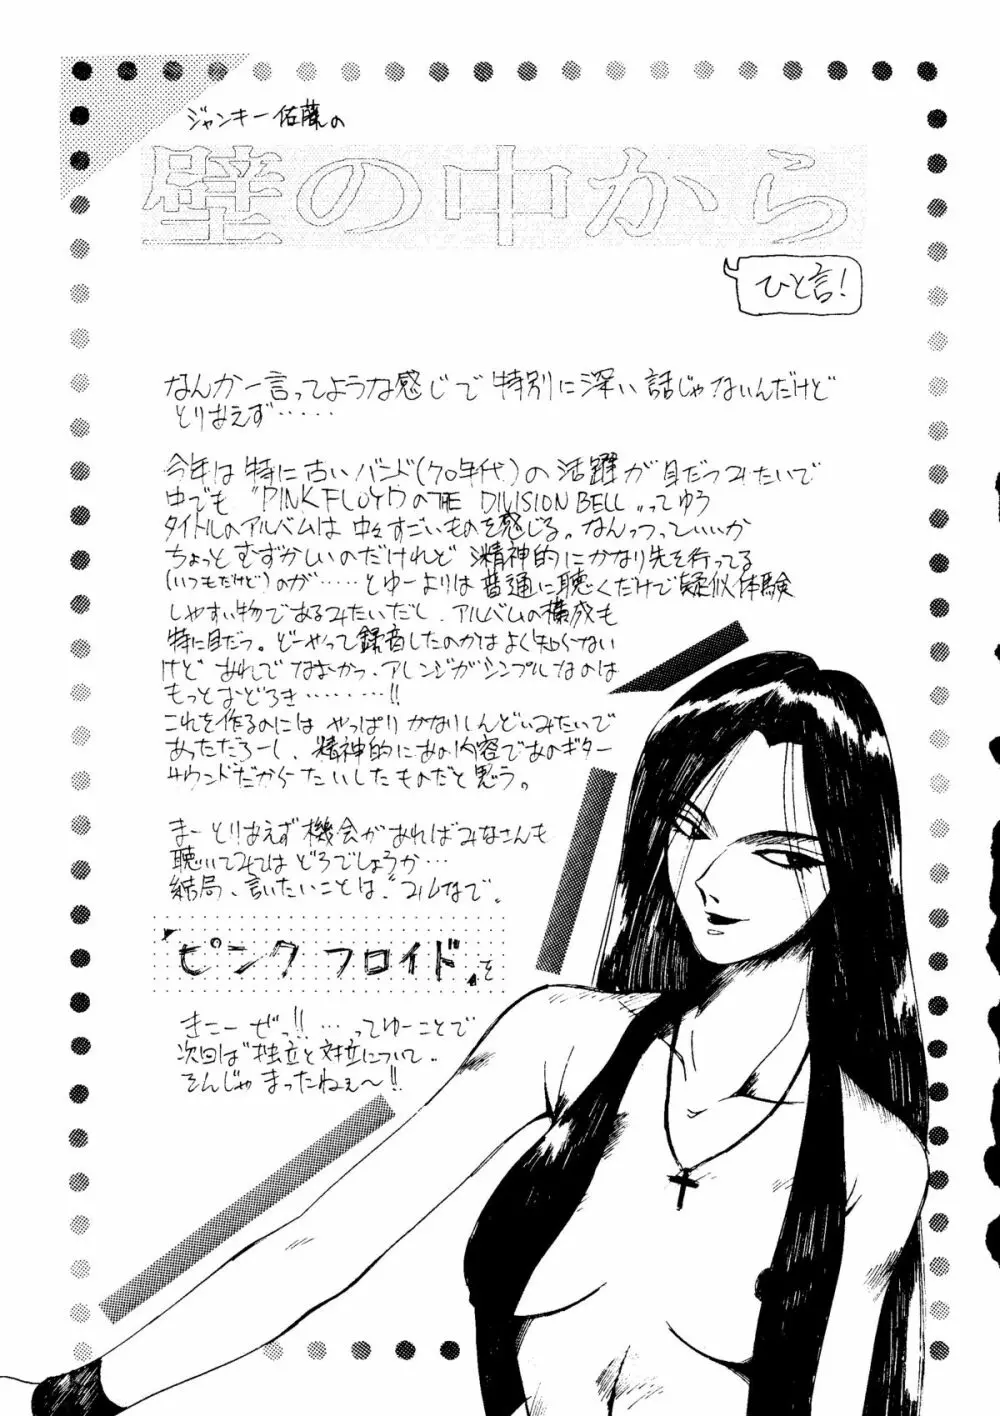 ジャンキー佐藤の
壁の中から
ひと言!
なんか一言ってような感じで特別に深い話じゃないんだけど
とりあえず‥‥‥
今年は特に古いバンド(70年代)の活躍が目だつみたいで
中でも〝PINK FLOYDのTHE DIVISION BELL〟ってゆう
タイトルのアルバムは中々すごいものを感じる。なんつっていいか
ちょっとむずかしいのだけれど 精神的にかなり先を行ってる
(いつもだけど)のが‥‥‥とゆーよりは普通に聴くだけで疑似体験
しやすい物であるみたいだし、アルバムの構成も
特に目だつ。どーやって録音したのかはよく知らない
けど あれでなおかつ、アレンジがシンプルなのは
もっとおどろき‥‥‥‥!!
これを作るのには やっぱり かなりしんどいみたいで
あっただろーし、精神的にあの内容であのギター
サウンドだからたいしたものだと思う。
まーとりあえず機会があればみなさんも
聴いてみてはどうでしょうか‥
結局、言いたいことは、
「ピンク フロイド」を
きこーぜっ!!‥‥ってゆーことで
次回は〝独立と対立について〟
そんじゃ まったねぇ〜!!